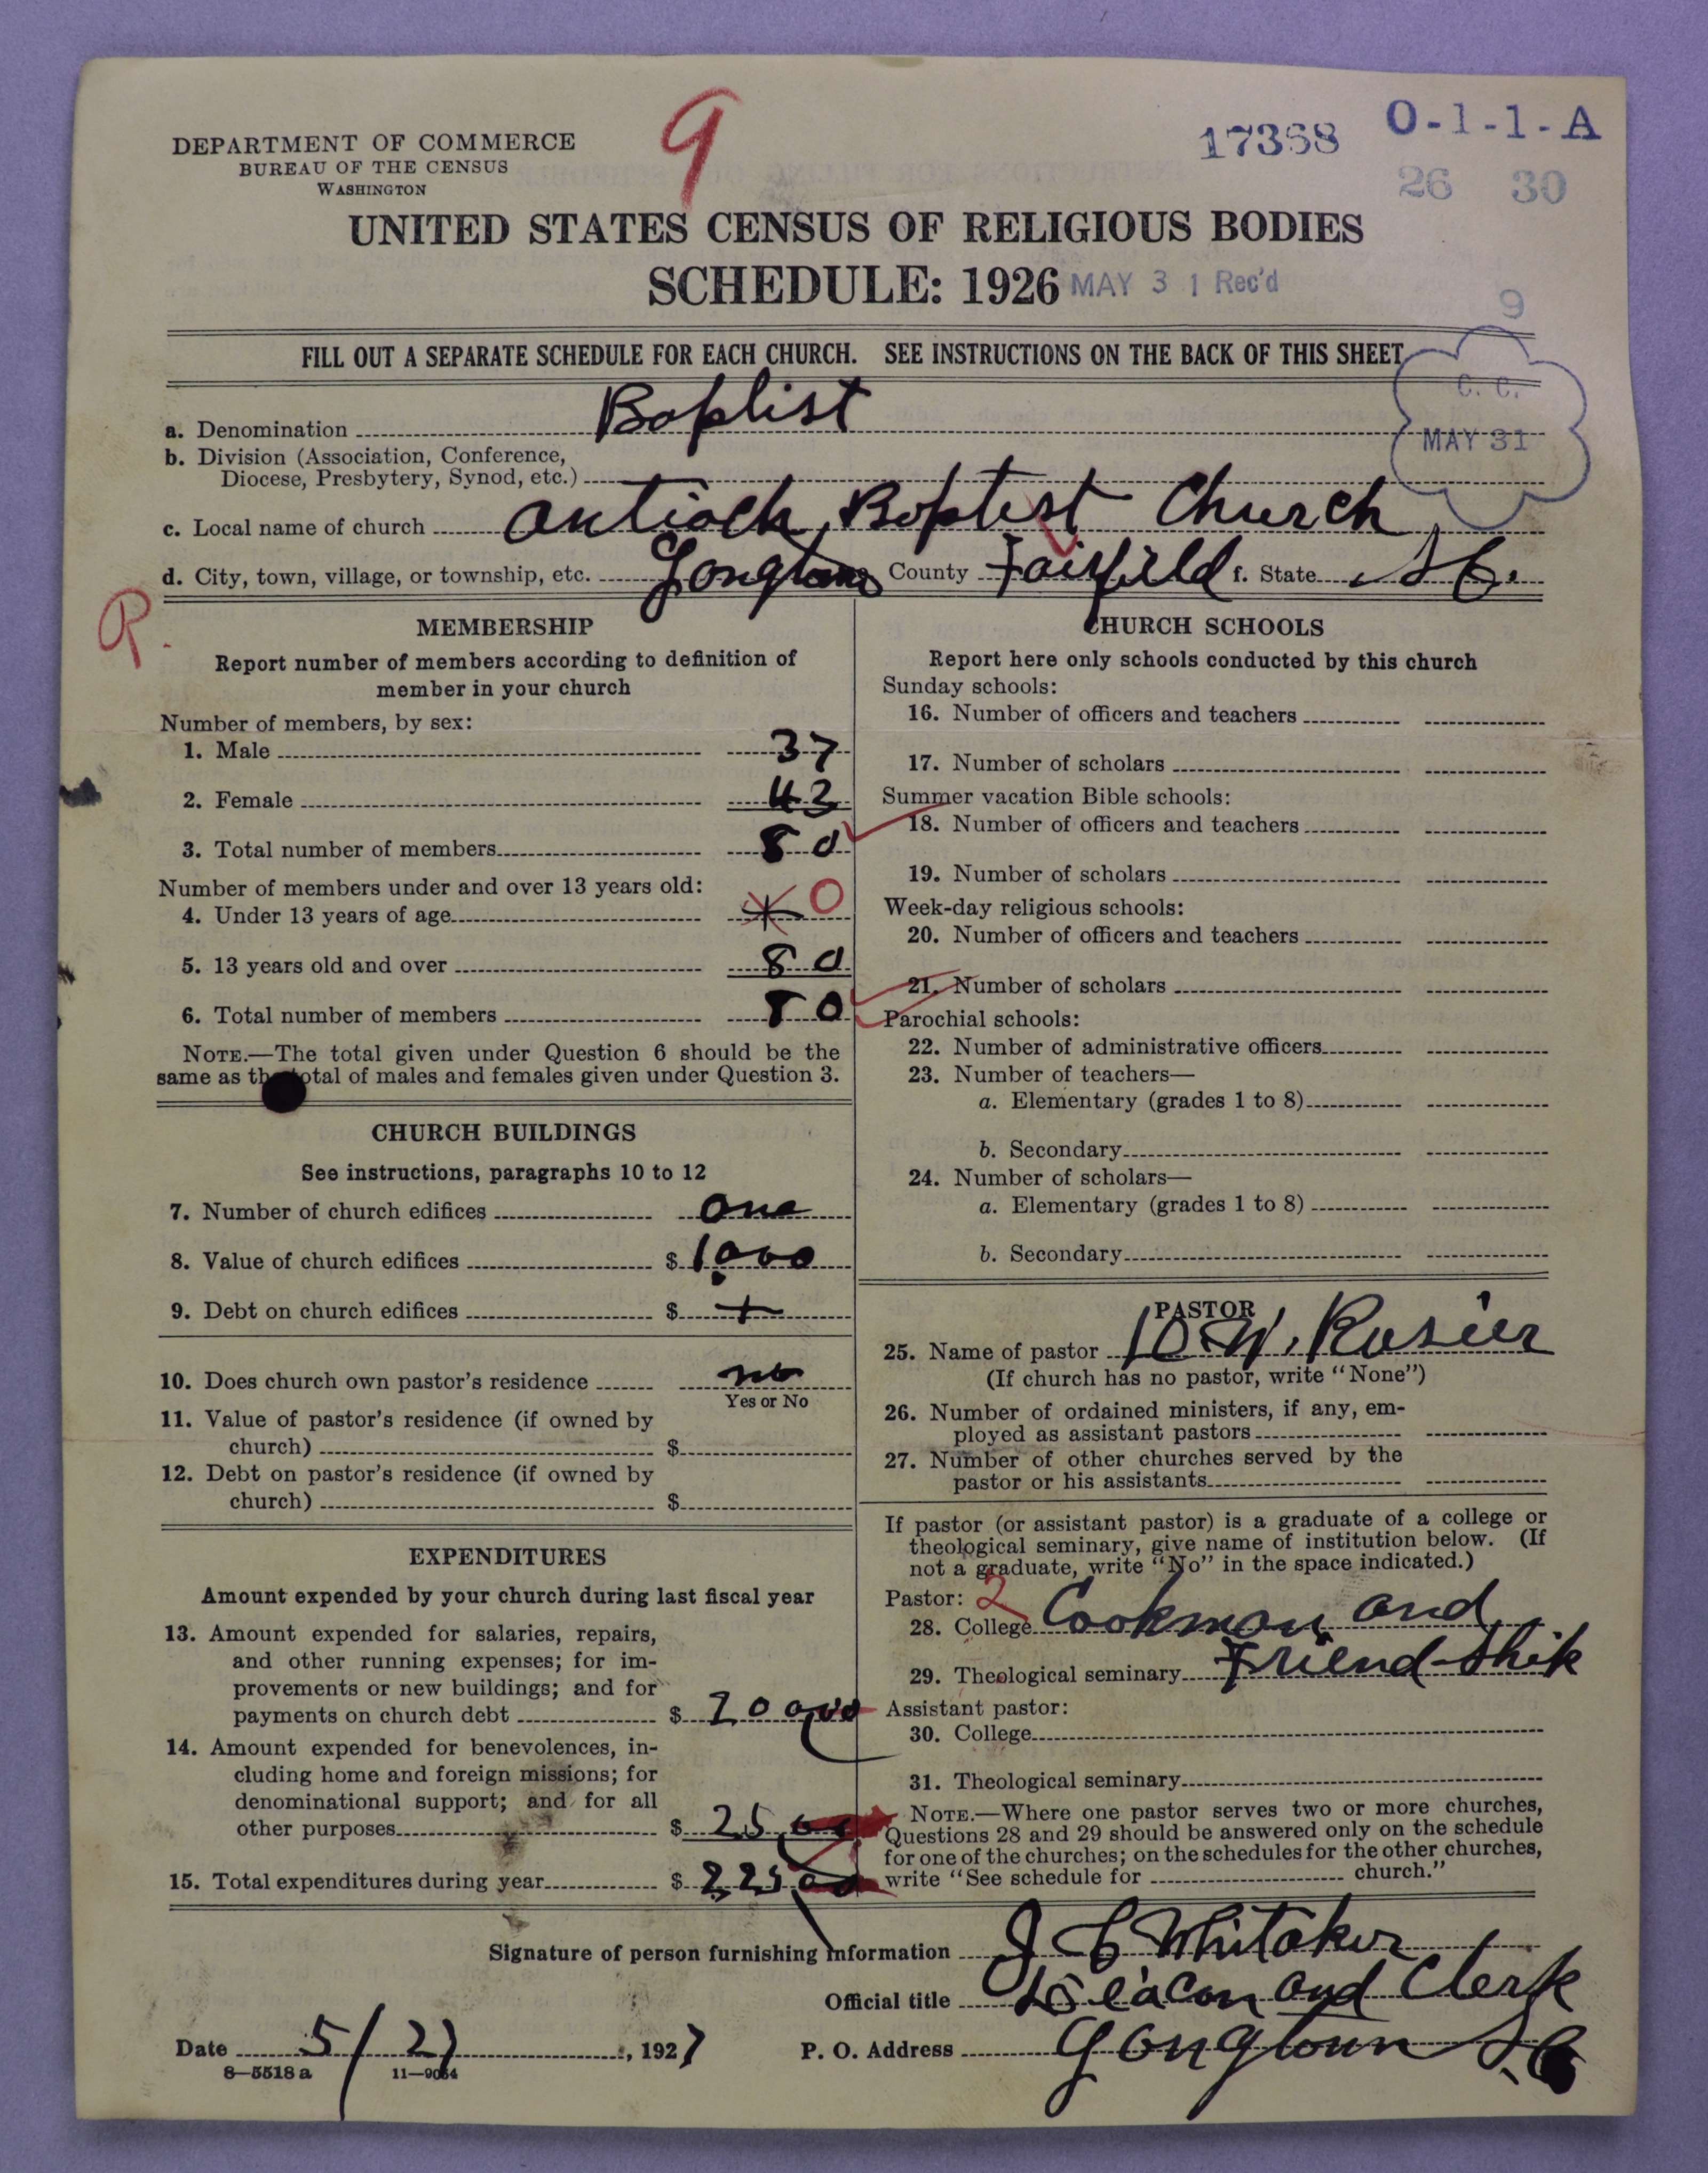 9
17368
O-1-1-A
26 30
DEPARTMENT OF COMMERCE
BUREAU OF THE CENSUS
WASHINGTON
UNITED STATES CENSUS OF RELIGIOUS BODIES
SCHEDULE: 1926
MAY 31 Rec'd
9
FILL OUT A SEPARATE SCHEDULE FOR EACH CHURCH. SEE INSTRUCTIONS ON THE BACK OF THIS SHEET
C. C.
MAY 31
a. Denomination Baptist
b. Division (Association, Conference,
Diocese, Presbytery, Synod, etc.)
c. Local name of church Antioch Baptist Church
d. City, town, village, or township, etc. Longtown County Fairfield f. State S C.
MEMBERSHIP
Report number of members according to definition of
member in your church
Number of members, by sex:
1. Male 37
2. Female 43
3. Total number of members 80
Number of members under and over 13 years old:
4. Under 13 years of age 0
5. 13 years old and over 80
6. Total number of members 80
NOTE.—The total given under Question 6 should be the
same as the total of males and females given under Question 3.
CHURCH BUILDINGS
See instructions, paragraphs 10 to 12
7. Number of church edifices one
8. Value of church edifices $ 1,000
9. Debt on church edifices $
10. Does church own pastor's residence no
Yes or No
11. Value of pastor's residence (if owned by
church) $
12. Debt on pastor's residence (if owned by
church) $
EXPENDITURES
Amount expended by your church during last fiscal year
13. Amount expended for salaries, repairs,
and other running expenses; for im-
provements or new buildings; and for
payments on church debt $ 200.00
14. Amount expended for benevolences, in-
cluding home and foreign missions; for
denominational support; and for all
other purposes $ 25.00
15. Total expenditures during year $ 225.00
CHURCH SCHOOLS
Report here only schools conducted by this church
Sunday schools:
16. Number of officers and teachers
17. Number of scholars
Summer vacation Bible schools:
18. Number of officers and teachers
19. Number of scholars
Week-day religious schools:
20. Number of officers and teachers
21. Number of scholars
Parochial schools:
22. Number of administrative officers
23. Number of teachers—
a. Elementary (grades 1 to 8)
b. Secondary
24. Number of scholars—
a. Elementary (grades 1 to 8)
b. Secondary
PASTOR
25. Name of pastor W. Rosier
(If church has no pastor, write "None")
26. Number of ordained ministers, if any, em-
ployed as assistant pastors
27. Number of other churches served by the
pastor or his assistants
If pastor (or assistant pastor) is a graduate of a college or
theological seminary, give name of institution below. (If
not a graduate, write "No" in the space indicated.)
Pastor: 2
28. College Cookman and
29. Theological seminary Friend-Ship
Assistant pastor:
30. College
31. Theological seminary
NOTE.—Where one pastor serves two or more churches,
Questions 28 and 29 should be answered only on the schedule
for one of the churches; on the schedules for the other churches,
write "See schedule for church."
Signature of person furnishing information J C Whitaker
Official title Deacon and Clerk
Date 5/27, 1927
P. O. Address Longtown S.C
8—5518 a
11—9054